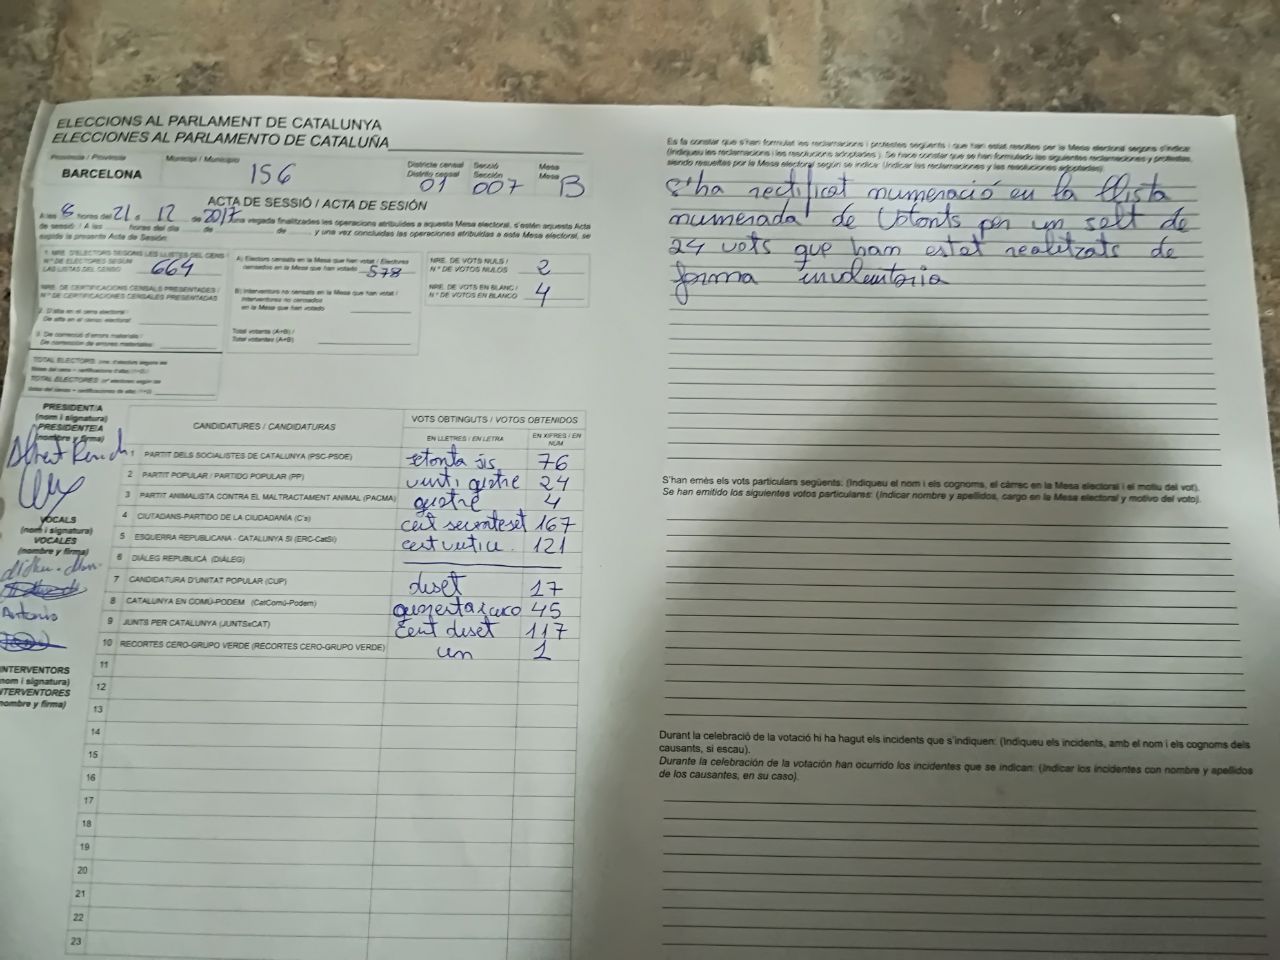 ELECCIONS AL PARLAMENT DE CATALUNYA
ELECCIONES AL PARLAMENTO DE CATALUÑA
Provincia / Provincia
Municipi / Municipio
Districte censal
Distrito censal
Secció
Sección
Mesa
Mesa
BARCELONA
156
01
007
B
ACTA DE SESSIÓ / ACTA DE SESIÓN
A les 8 hores del 21 d 12 de 2017 una vegada finalitzades les operacions atribuïdes a aquesta Mesa electoral, s'estén aquesta Acta
de sessió / A las horas del día de de , y una vez concluidas las operaciones atribuidas a este Mesa electoral, se
expide la presente Acta de Sesión:
1. NRE. D'ELECTORS SEGONS LES LLISTES DEL CENS /
Nº DE ELECTORES SEGÚN
LAS LISTAS DEL CENSO
664
NRE. DE CERTIFICACIONS CENSALS PRESENTADES /
Nº DE CERTIFICACIONES CENSALES PRESENTADAS
2. D'alta en el cens electoral /
De alta en el censo electoral:
3. De correcció d'errors materials /
De corrección de errores materiales:
TOTAL ELECTORS
TOTAL ELECTORES
A) Electors censats en la Mesa que han votat / Electores
censados en la Mesa que han votado 578
B) Interventors no censats en la Mesa que han votat /
Interventores no censados
en la Mesa que han votado
Total votants (A+B) /
Total votantes (A+B)
NRE. DE VOTS NULS /
Nº DE VOTOS NULOS 2
NRE. DE VOTS EN BLANC /
Nº DE VOTOS EN BLANCO 4
PRESIDENT/A
(nom i signatura)
PRESIDENTE/A
(nombre y firma)
Albert
VOCALS
(nom i signatura)
VOCALES
(nombre y firma)
Antonio
INTERVENTORS
(nom i signatura)
INTERVENTORES
(nombre y firma)
CANDIDATURES / CANDIDATURAS
VOTS OBTINGUTS / VOTOS OBTENIDOS
EN LLETRES / EN LETRA
EN XIFRES / EN NÚM
1 PARTIT DELS SOCIALISTES DE CATALUNYA (PSC-PSOE) setanta sis 76
2 PARTIT POPULAR / PARTIDO POPULAR (PP) vint i quatre 24
3 PARTIT ANIMALISTA CONTRA EL MALTRACTAMENT ANIMAL (PACMA) quatre 4
4 CIUTADANS-PARTIDO DE LA CIUDADANÍA (C's) cent seixantaset 167
5 ESQUERRA REPUBLICANA - CATALUNYA SÍ (ERC-CatSí) cent vint i u 121
6 DIÀLEG REPUBLICÀ (DIÀLEG)
7 CANDIDATURA D'UNITAT POPULAR (CUP) diset 17
8 CATALUNYA EN COMÚ-PODEM (CatComú-Podem) quarentacinco 45
9 JUNTS PER CATALUNYA (JUNTSxCAT) cent diset 117
10 RECORTES CERO-GRUPO VERDE (RECORTES CERO-GRUPO VERDE) un 1
11
12
13
14
15
16
17
18
19
20
21
22
23
Es fa constar que s'han formulat les reclamacions i protestes següents i que han estat resoltes per la Mesa electoral segons s'indica:
(Indiqueu les reclamacions i les resolucions adoptades). Se hace constar que se han formulado las siguientes reclamaciones y protestas,
siendo resueltas por la Mesa electoral según se indica: (Indicar las reclamaciones y las resoluciones adoptadas).
S'ha rectificat numeració en la llista
numerada de Votants per un salt de
24 vots que han estat realitzats de
forma involuntaria
S'han emès els vots particulars següents: (Indiqueu el nom i els cognoms, el càrrec en la Mesa electoral i el motiu del vot).
Se han emitido los siguientes votos particulares: (Indicar nombre y apellidos, cargo en la Mesa electoral y motivo del voto).
Durant la celebració de la votació hi ha hagut els incidents que s'indiquen: (Indiqueu els incidents, amb el nom i els cognoms dels
causants, si escau).
Durante la celebración de la votación han ocurrido los incidentes que se indican: (Indicar los incidentes con nombre y apellidos
de los causantes, en su caso).